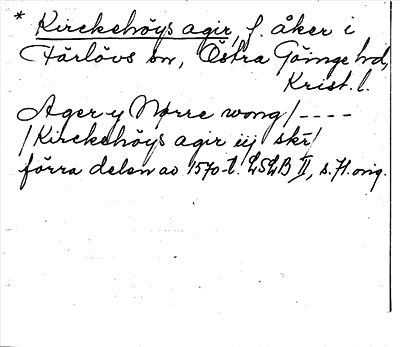 * Kirckehöys agir, f. åker i
Färlövs sn, Östra Göinge hd,
Krist. l.
Ager y Nørre wong / - - - -
/ Kirckehöys agir iij skr /
förra delen av 1570-t. LSLB II, s. 71. orig.